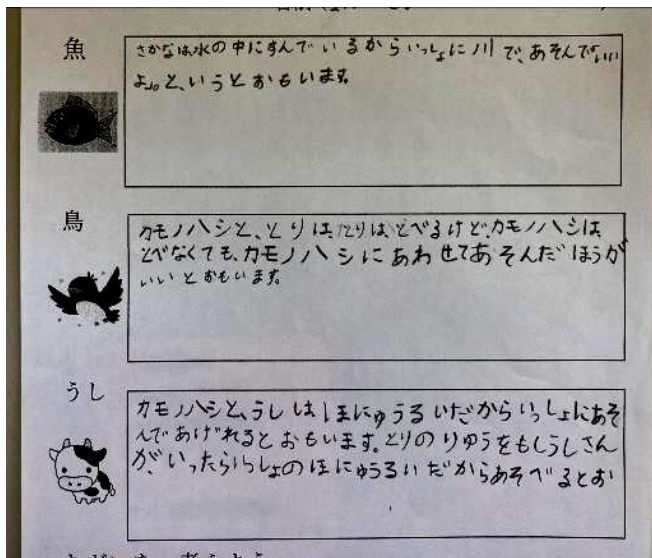 魚
さかなは水の中にすんでいるからいっしょに川で、あそんでいい
よ。と、いうとおもいます。
鳥
カモノハシと、とりは、とりは、とべるけど、カモノハシは
とべなくても、カモノハシにあわせてあそんだほうが
いいとおもいます。
うし
カモノハシと、うしはほにゅうるいだからいっしょにあそ
んであげれるとおもいます。とりのりゆうをもしうしさん
が、いったらいっしょのほにゅうるいだからあそべるとお